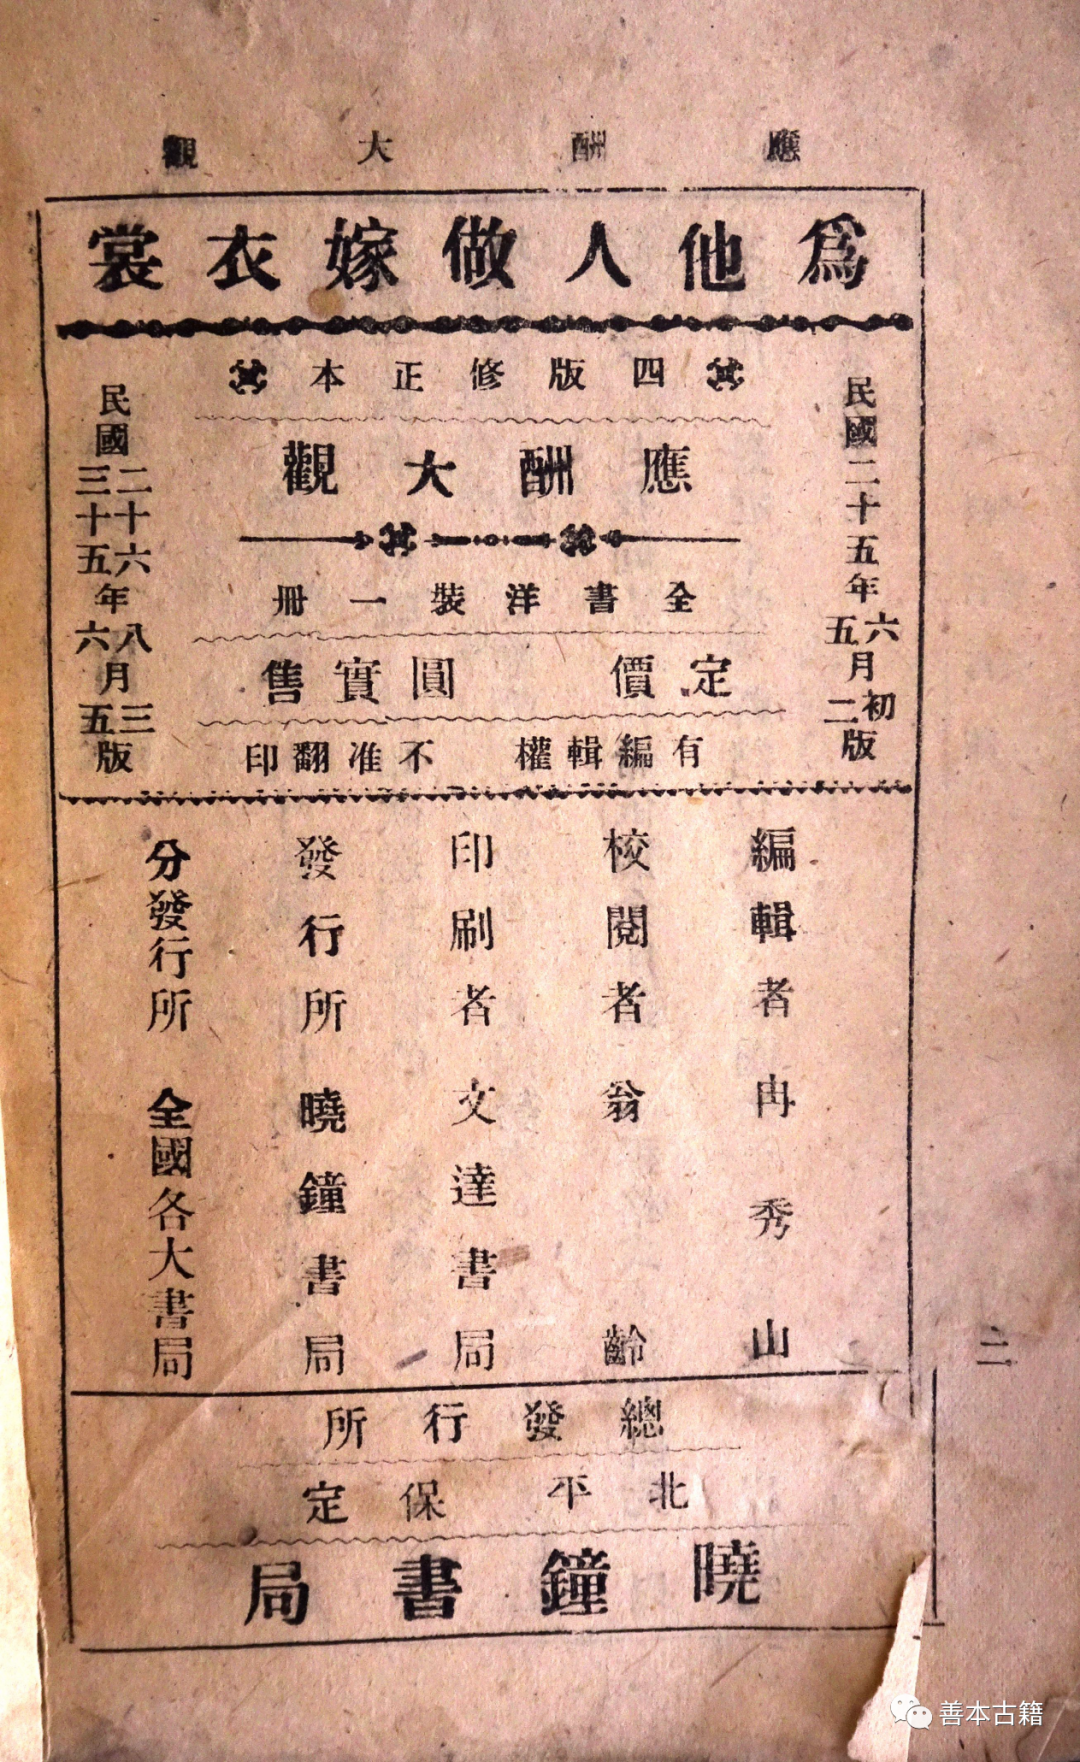 應酬大觀
爲他人做嫁衣裳
四版修正本
應酬大觀
全書洋裝一冊
定價　圓實售
有編輯權　不准翻印
民國二十五年六月初版
五月二版
民國二十六年八月三版
三十五年六月五版
編輯者　冉秀山
校閱者　翁齡
印刷者　文達書局
發行所　曉鐘書局
分發行所　全國各大書局
總發行所
北平　保定
曉鐘書局
二
善本古籍